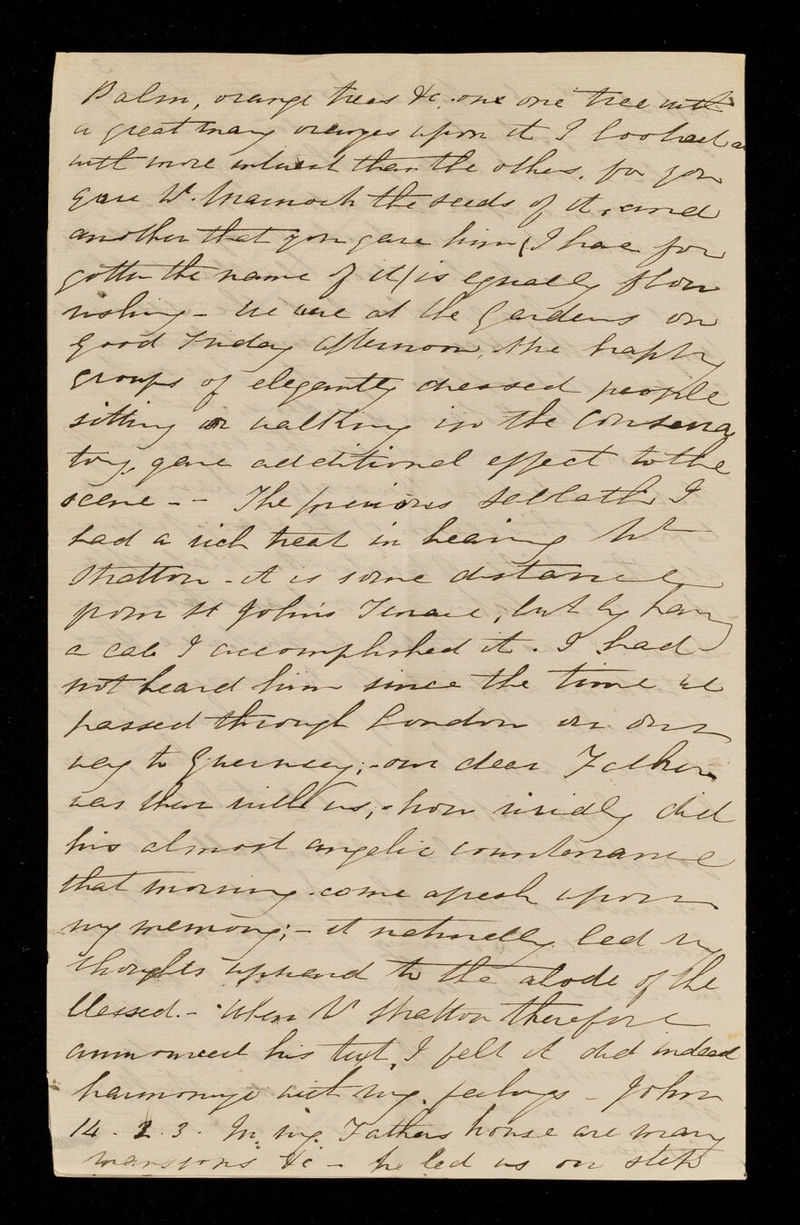 Palm, orange trees &c, one one tree with
a great many oranges upon it I looked a
with more interest than the others, for you
gave Mr. Marnock the seeds of it, and
another that you gave him (I have for
gotten the name of it) is equally flou
rishing - we were at the Gardens on
Good Friday afternoon, the happy
groups of elegantly dressed people
sitting or walking in the Conserva
tory, gave additional effect to the
scene -- The previous Sabbath I
had a rich treat in hearing Mr
Stratton - it is some distance
from St John's Terrace, but by having
a cab I accomplished it. I had
not heard him since the time we
passed through London on our
way to Guernsey; - our dear Father
was then with us, - how vividly did
his almost angelic countenance
that morning come afresh upon
my memory; - it naturally led my
thoughts upward to the abode of the
blessed. - When Mr Stratton therefore
announced his text, I felt it did indeed
harmonize with my feelings - John
14. 2. 3. In my Fathers house are many
mansions &c - he led us on step